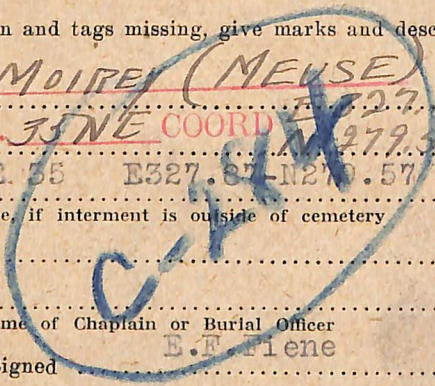 n and tags missing, give marks and desc
MOIREY (MEUSE)
E327.
35NE COORD N279.5
35 E327.87-N279.57
e, if interment is outside of cemetery
C-244
me of Chaplain or Burial Officer
E.F.Piene
igned